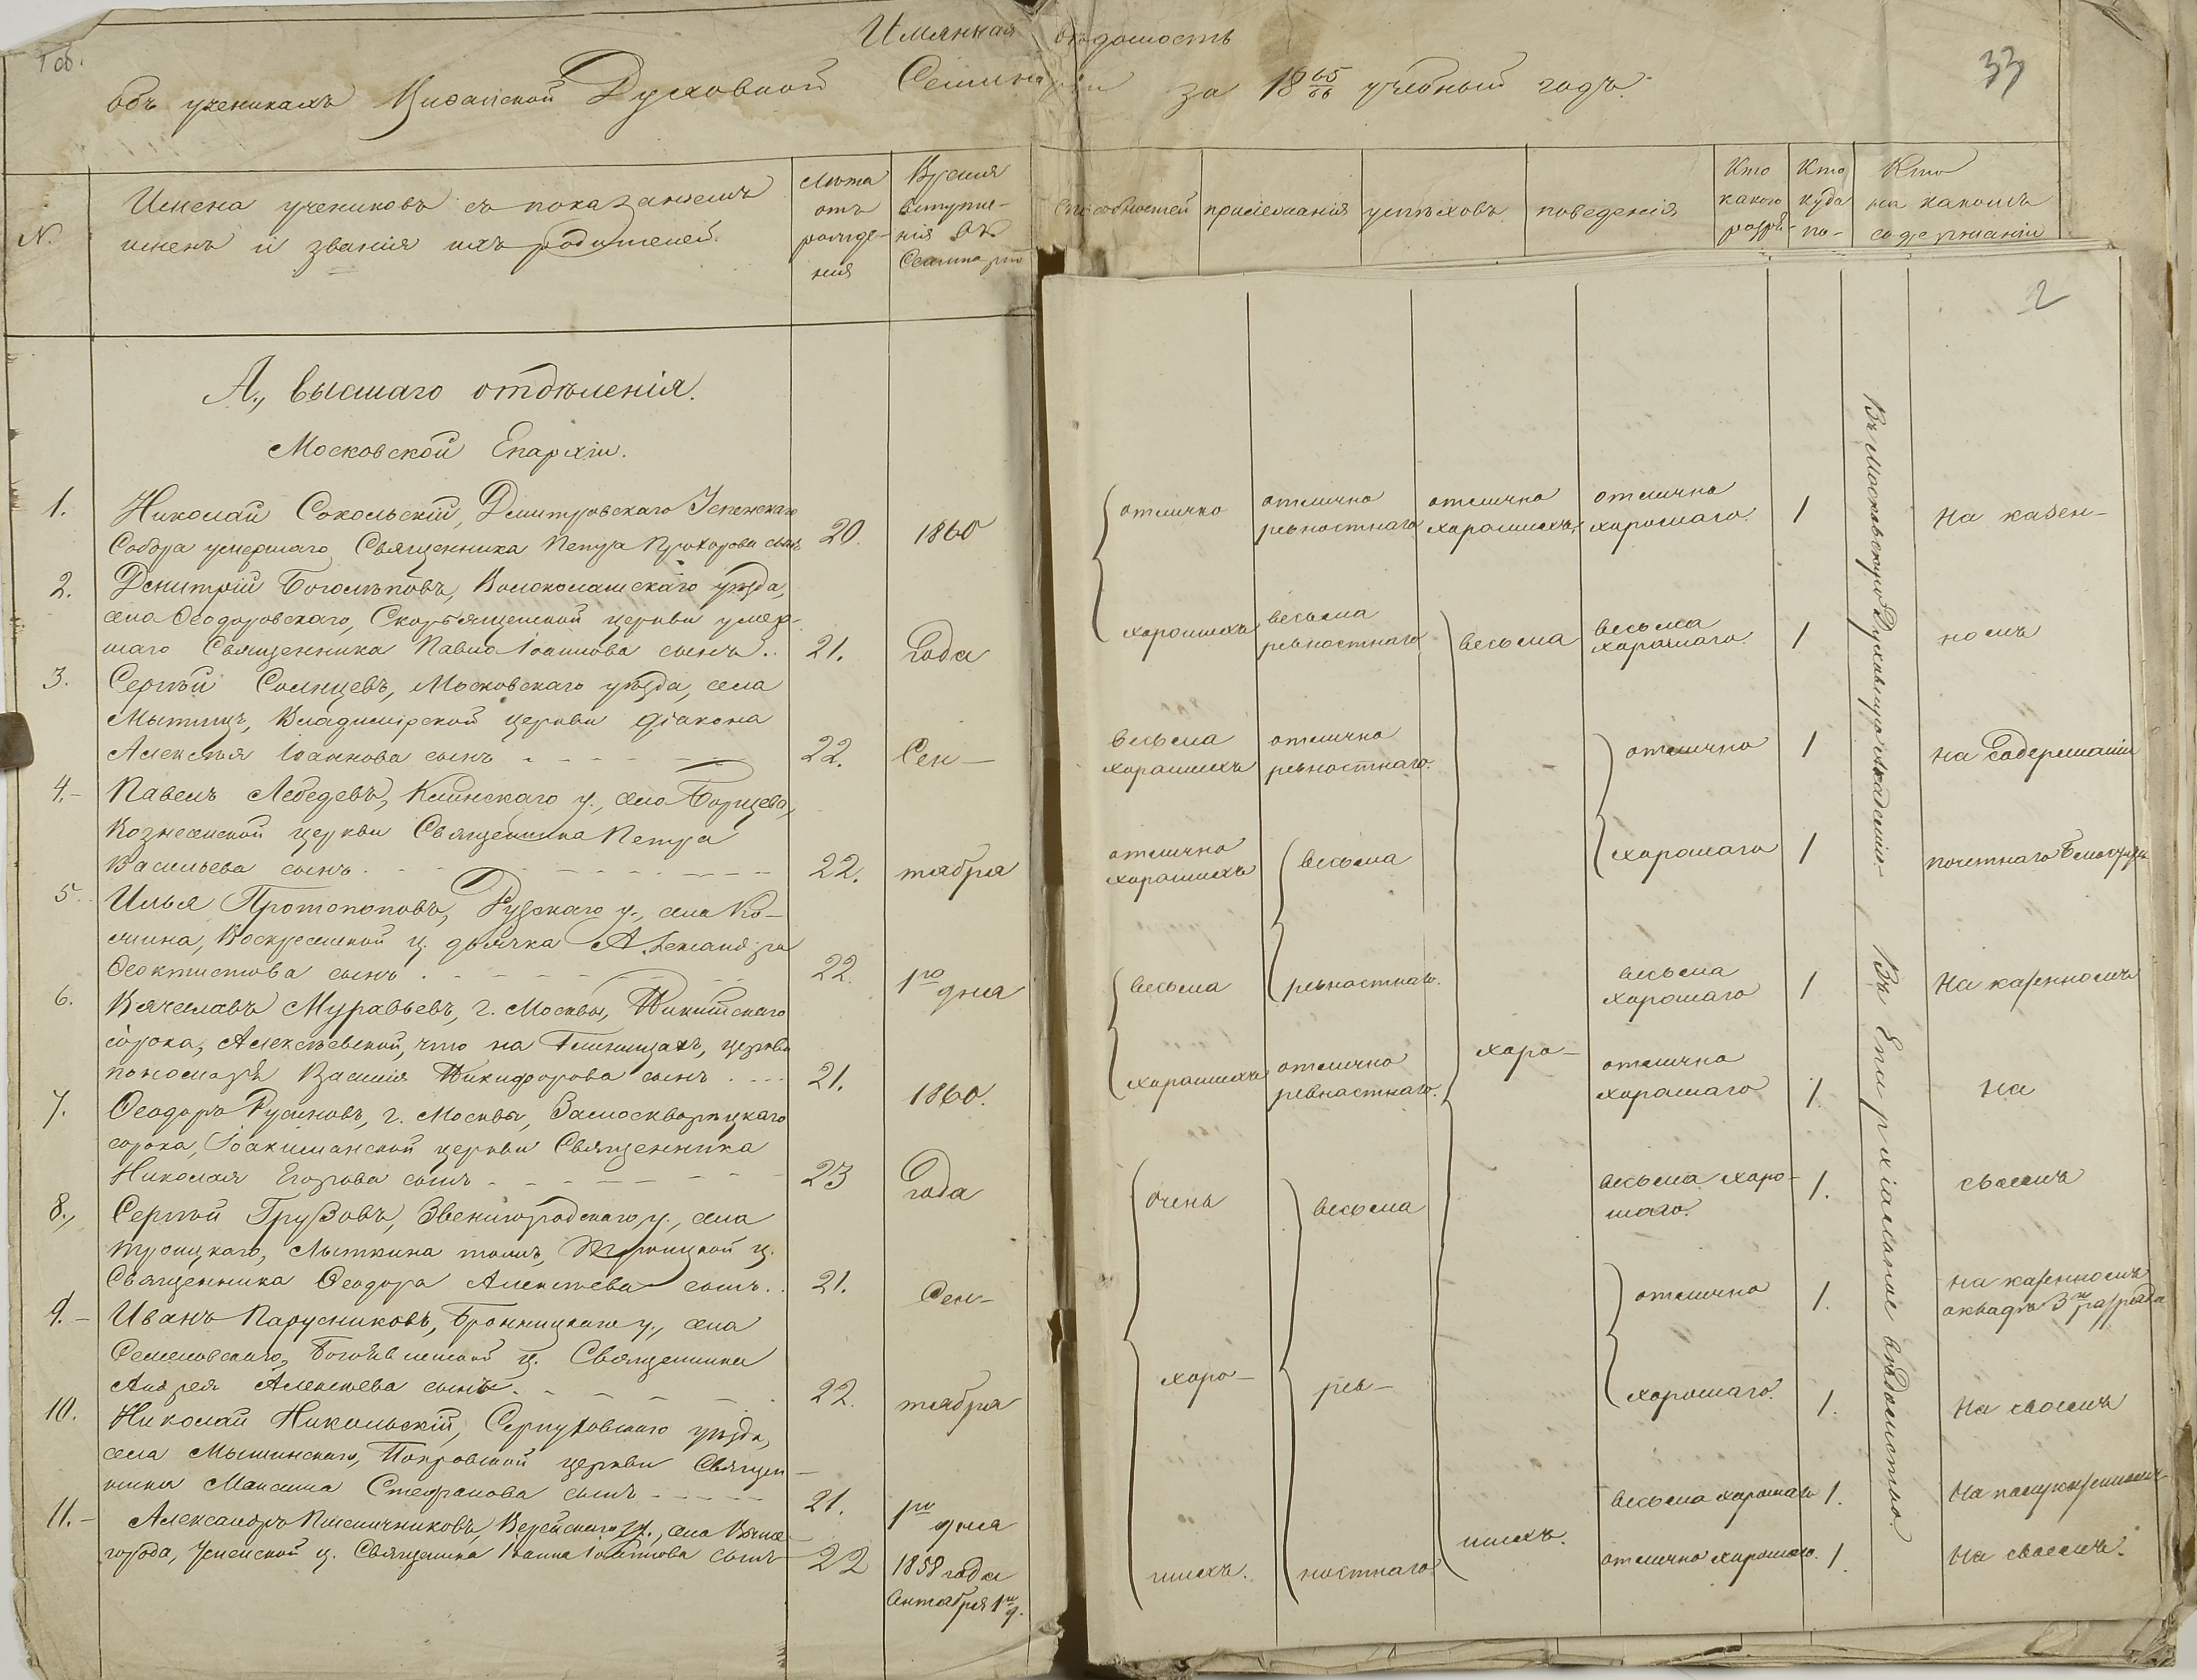 1 об.
Имянная вѣдомость
33
объ ученикахъ Виѳанской Духовной Семинаріи за 18 65/66 учебный годъ.
N.
Имена учениковъ съ показаніемъ
именъ и званія ихъ родителей.
Лѣта
отъ
рожде-
нія
Время
вступле-
нія въ
Семинарію
способностей
прилежанія
успѣховъ
поведенія
Кто
какого
разря-
Кто
куда
по-
Кто
на какомъ
содержаніи
2
А., высшаго отдѣленія.
Московской Епархіи.
1.
Николай Сокольскій, Дмитровскаго Успенскаго
Собора умершаго Священника Петра Прохорова сынъ
20.
1860
отлично
отлично
ревностнаго
отлично
хорошихъ
отлично
хорошаго.
1
На казен-
2.
Димитрій Боголѣповъ, Волоколамскаго уѣзда,
села Ѳеодоровскаго, Скорбященской церкви умер-
шаго Священника Павла Іоаннова сынъ..
21.
года
хорошихъ
весьма
ревностнаго
весьма
весьма
хорошаго
1
номъ
3.
Сергѣй Солнцевъ, Московскаго уѣзда, села
Мытищъ, Владимірской церкви діакона
Алексѣя Іоаннова сынъ
22.
Сен-
весьма
хорошихъ
отлично
ревностнаго.
отлично
1
на содержаніи
4.-
Павелъ Лебедевъ, Клинскаго у., села Борщева,
Вознесенской церкви Священника Петра
Васильева сынъ
22.
тября
отлично
хорошихъ
весьма
хорошаго
1
почетнаго
5.
Илья Протопоповъ, Рузскаго у., села Ко-
люина, Воскресенской ц. дьячка Александра
Ѳеоктистова сынъ
22.
1го
дня
весьма
ревностнаго.
весьма
хорошаго
1
На казенномъ
6.
Вячеславъ Муравьевъ, г. Москвы, Никитскаго
сорока, Алексѣевской, что на Глинищахъ, церкви
пономаря Василія Никифорова сынъ
21.
1860.
хорошихъ
отлично
ревностнаго.
хоро-
отлично
хорошаго
1.
на
7.
Ѳеодоръ Русиновъ, г. Москвы, Замоскворѣцкаго
сорока, Іоакиманской церкви Священника
Николая Егорова сынъ
23
года
очень
весьма
весьма хоро-
шаго.
1.
своемъ
8.,
Сергѣй Грузовъ, Звенигородскаго у., села
Троицкаго, Лыткина тожъ, Троицкой ц.
Священника Ѳеодора Алексѣева сынъ..
21.
Сен-
отлично
1.
на казенномъ
окладѣ 3го разряда
9.-
Иванъ Парусниковъ, Бронницкаго у., села
Семеновскаго, Богоявленской ц. Священника
Андрея Алексѣева сынъ.
22.
тября
хоро-
рев-
хорошаго.
1.
На своемъ
10.
Николай Никольскій, Серпуховскаго уѣзда,
села Мышинскаго, Покровской церкви Священ-
ника Максима Стефанова сынъ
21.
1го
дня
весьма хорошаго
1.
На полуказенномъ
11.-
Александръ Пшеничниковъ, Верейскаго у., села Выше-
города, Успенской ц. Священника Іоанна Іоаннова сынъ
22
1858 года
Сентября 1го д.
шихъ.
ностнаго
шихъ.
отлично хорошаго.
1.
На своемъ.
Въ Московскую Духовную Академію.
Въ Епархіальное вѣдомство.